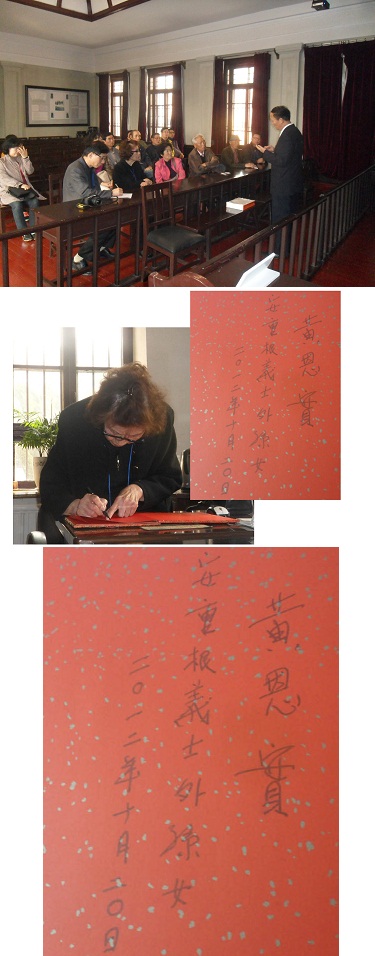 黃恩實
安重根義士外孫女
二〇一二年十月二〇日
黃恩實
安重根義士外孫女
二〇一二年十月二〇日